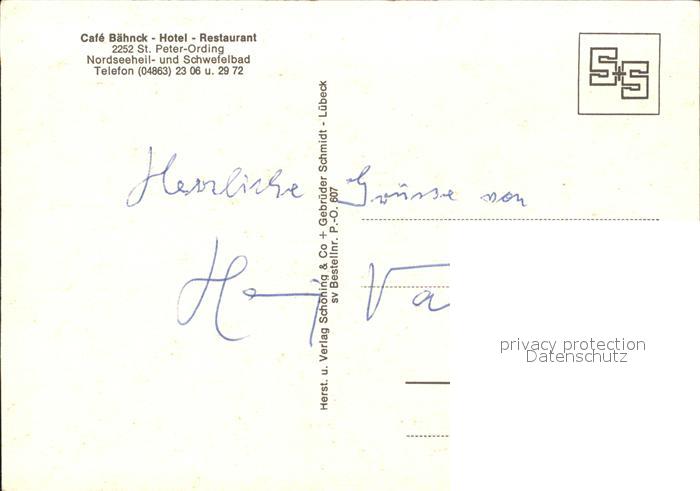 Café Bähnck - Hotel - Restaurant
2252 St. Peter-Ording
Nordseeheil- und Schwefelbad
Telefon (04863) 23 06 u. 29 72
S+S
Herzliche Grüsse von
Herst. u. Verlag Schöning & Co + Gebrüder Schmidt - Lübeck
sv Bestellnr. P.-O. 607
privacy protection
Datenschutz